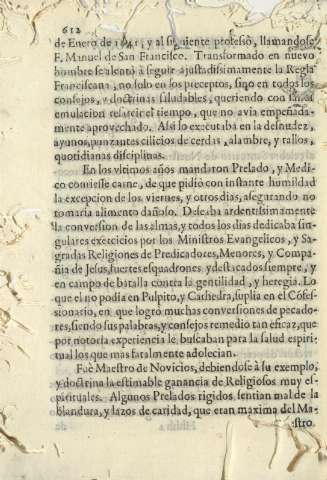 612
de Enero de 1641, y al siguiente professò, llamandose
F. Manuel de San Francisco. Transformado en nuevo
hombre se alentò à seguir ajustadissimamente la Regla
Franciscana, no solo en los preceptos, sino en todos los
consejos, y doctrinas saludables, queriendo con
emulacion resarcir el tiempo, que no avia empeñada-
mente aprovechado. Assi lo executaba en la desnudez,
ayunos, punzantes cilicios de cerdas, alambre, y rallos,
quotidianas disciplinas.
En los vltimos años mandaron Prelado, y Medi-
co comiesse carne, de que pidiò con instante humildad
la excepcion de los viernes, y otros dias, asegurando no
tomaria alimento dañoso. Deseaba ardentissimamente
la conversion de las almas, y todos los dias dedicaba sin-
gulares exercicios por los Ministros Evangelicos, y Sa-
gradas Religiones de Predicadores, Menores, y Compa-
ñia de Jesus, fuertes esquadrones, y destacados siempre, y
en campo de batalla contra la gentilidad, y heregia. Lo
que el no podia en Pulpito, y Cathedra, suplia en el Cõfes-
sionario, en que logrò muchas conversiones de pecado-
res, siendo sus palabras, y consejos remedio tan eficaz, que
por notoria experiencia le buscaban para la salud espiri-
tual los que mas fatalmente adolecian.
Fuè Maestro de Novicios, debiendose à su exemplo,
y doctrina la estimable ganancia de Religiosos muy es-
pirituales. Algunos Prelados rigidos sentian mal de la
blandura, y lazos de caridad, que eran maxima del Ma-
stro